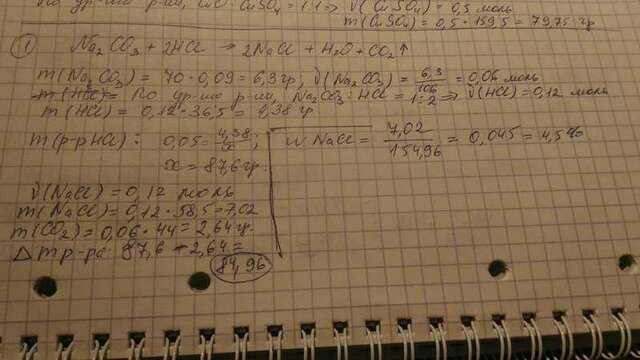 По ур-нию р-ии, CuO : CuSO₄ = 1:1 => ν(CuSO₄) = 0,5 моль
m(CuSO₄) = 0,5 · 159,5 = 79,75 гр
① Na₂CO₃ + 2HCl → 2NaCl + H₂O + CO₂↑
m(Na₂CO₃) = 70 · 0,09 = 6,3 гр, ν(Na₂CO₃) = 6,3/106 = 0,06 моль
m(HCl) = По ур-нию р-ии, Na₂CO₃ : HCl = 1:2 => ν(HCl) = 0,12 моль
m(HCl) = 0,12 · 36,5 = 4,38 гр
m(р-рHCl): 0,05 = 4,38/x;
x = 87,6 гр.
ν(NaCl) = 0,12 моль
m(NaCl) = 0,12 · 58,5 = 7,02
m(CO₂) = 0,06 · 44 = 2,64 гр.
Δmр-ра: 87,6 - 2,64 =
84,96
w NaCl = 7,02/154,96 = 0,045 = 4,5%